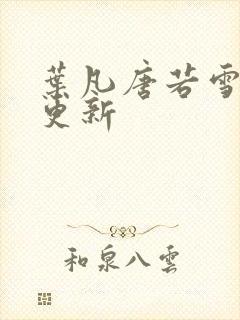 葉凡唐若雪
更新
和泉八雲